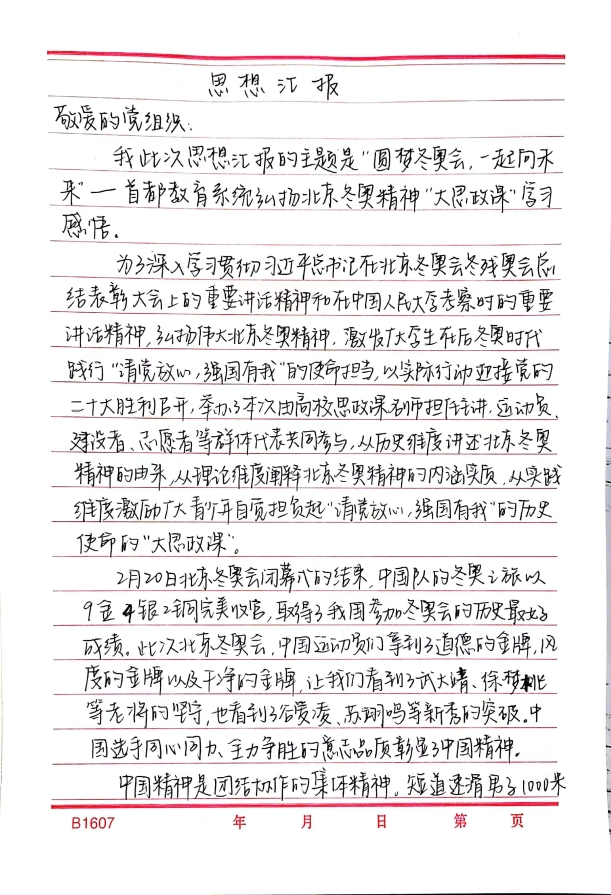 思想汇报
敬爱的党组织：
我此次思想汇报的主题是“圆梦冬奥会，一起向未
来”一首都教育系统弘扬北京冬奥精神“大思政课”学习
感悟。
为了深入学习贯彻习近平总书记在北京冬奥会冬残奥会总
结表彰大会上的重要讲话精神和在中国人民大学考察时的重要
讲话精神，弘扬伟大北京冬奥精神，激发广大学生在后冬奥时代
践行“请党放心，强国有我”的使命担当，以实际行动迎接党的
二十大胜利召开，举办了本次由高校思政课名师担任主讲，运动员、
建设者、志愿者等群体代表共同参与，从历史维度讲述北京冬奥
精神的由来，从理论维度阐释北京冬奥精神的内涵实质，从实践
维度激励广大青少年自觉担负起“请党放心，强国有我”的历史
使命的“大思政课”。
2月20日北京冬奥会闭幕式的结束，中国队的冬奥之旅以
9金4银2铜完美收官，取得了我国参加冬奥会的历史最好
成绩。此次北京冬奥会，中国运动员们拿到了道德的金牌，风
度的金牌以及干净的金牌，让我们看到了武大靖、徐梦桃
等老将的坚守，也看到了谷爱凌、苏翊鸣等新秀的突破。中
国选手同心同力、全力争胜的意志品质彰显了中国精神。
中国精神是团结协作的集体精神。短道速滑男子1000米
B1607 年 月 日 第 页